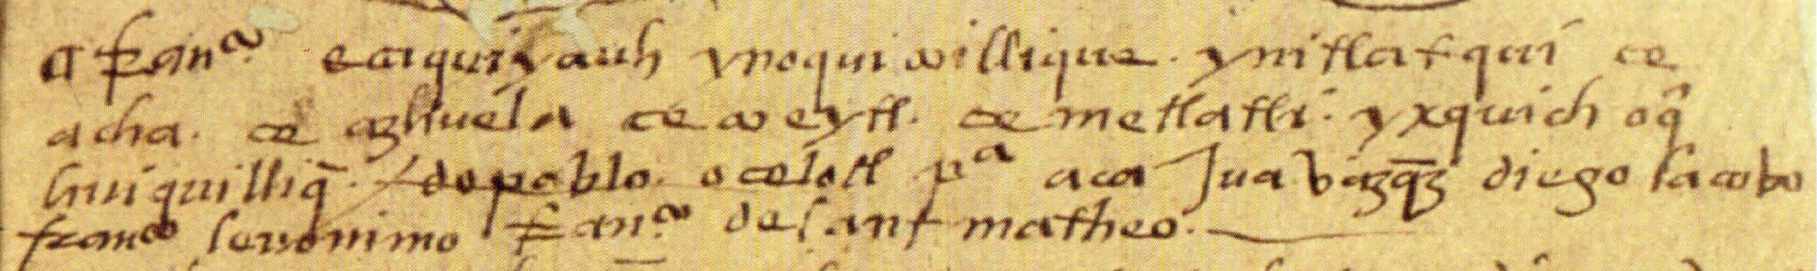 ¶ franco ecaquiyauh ynoquicuillique. ynitlatqui ce
acha. ce azhuela ce coeytl. ce metlatli. yxquich oq̃
huiquilliq̃. / do pablo. ocelotl pa aca Jua vazqz diego Jacobo
franco Jeronimo franco de sant matheo.